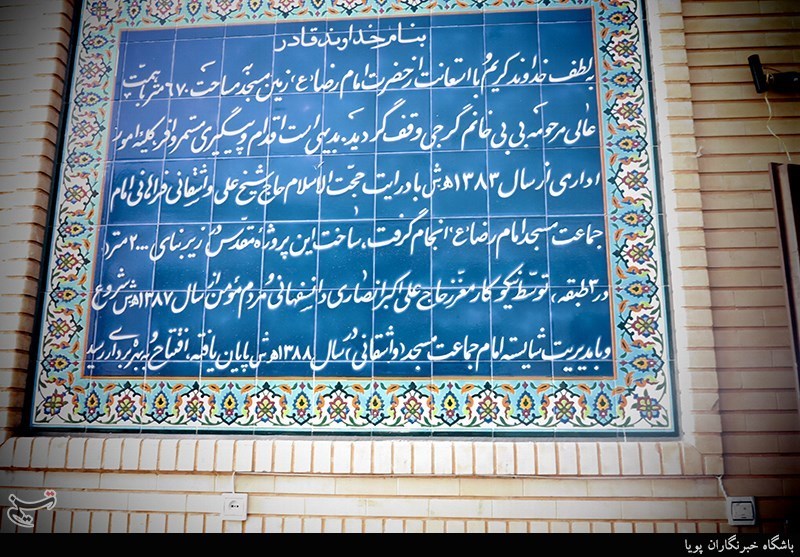 بنام خداوند قادر
به لطف خداوند کریم و با استعانت از حضرت امام رضا(ع) زمین مسجد بمساحت ۶۷۰ متر با همت
عالی مرحومه بی بی خانم گرجی وقف گردید. بدیهی است اقدام و پیگیری مستمر و افر کلیه امور
اداری از سال ۱۳۸۳ ه ش با درایت حجت الاسلام حاج شیخ علی واشقانی فراهانی امام
جماعت مسجد امام رضا(ع) انجام گرفت. ساخت این پروژه مقدس در زیربنای ۲۰۰۰ متر
در ۳ طبقه، توسط نیکوکار معزز حاج علی اکبر انصاری دانسفهانی و مردم مؤمن از سال ۱۳۸۷ ه ش شروع
و با مدیریت شایسته امام جماعت مسجد (واشقانی) در سال ۱۳۸۸ ه ش پایان یافته، افتتاح و به بهره برداری رسید
تسنیم
باشگاه خبرنگاران پویا